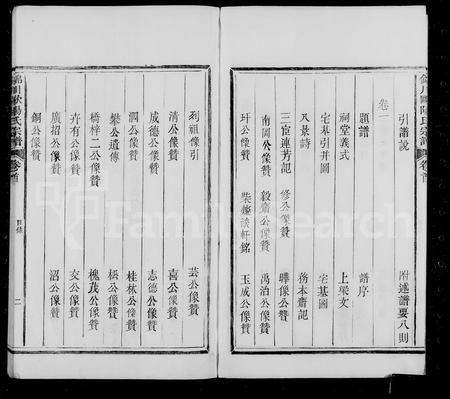 引譜說 附述譜要八則
卷一
題譜 譜序
祠堂義式 上梁文
宅基引并圖 宅基圖
八景詩 務本齋記
三宦連芳記 修公像贊 驊像公贊
南岡公像贊 毅齋公像贊 禹治公像贊
玕公像贊 柴 談軒銘 玉成公像贊
卷首
列祖像引 芸公像贊
清公像贊 喜公像贊
成德公像贊 志德公像贊
潤公像贊 桂林公像贊
樊公遺傳 松公像贊
橋梓二公像贊 槐茂公像贊
卉有公像贊 交公像贊
廣招公像贊 沼公像贊
銅公像贊
錦川歐陽氏宗譜 卷首
目錄
二
FamilySearch